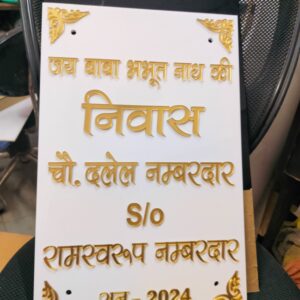 जय बाबा भभूत नाथ की
निवास
चौ. दलेल नम्बरदार
S/o
रामस्वरुप नम्बरदार
सन - 2024